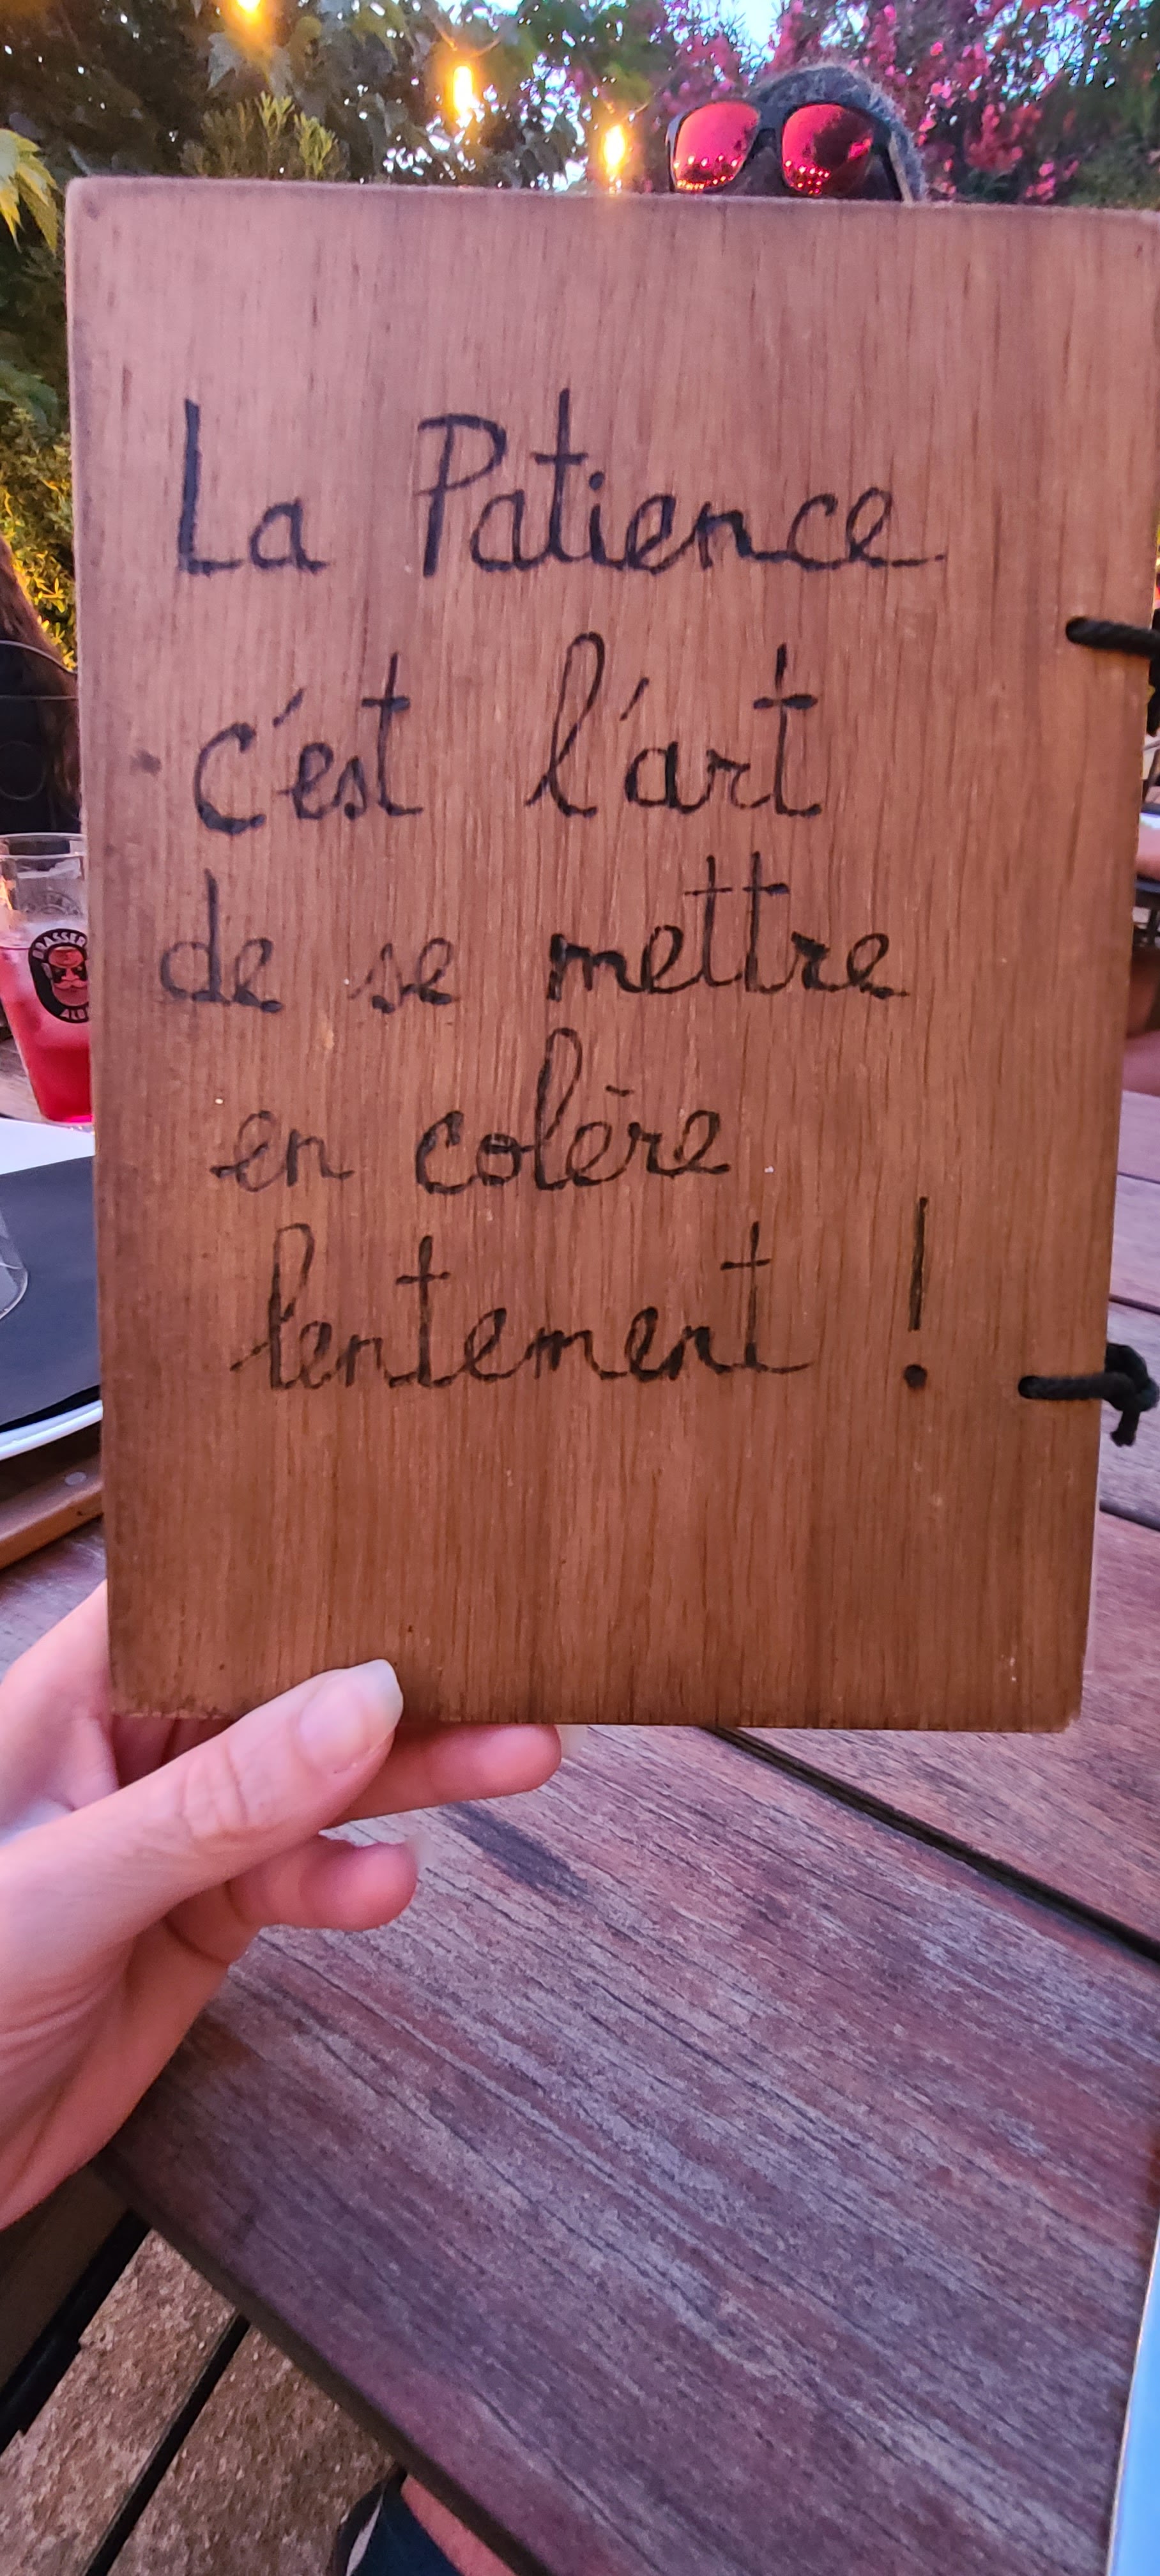 La Patience
c'est l'art
de se mettre
en colère
lentement !